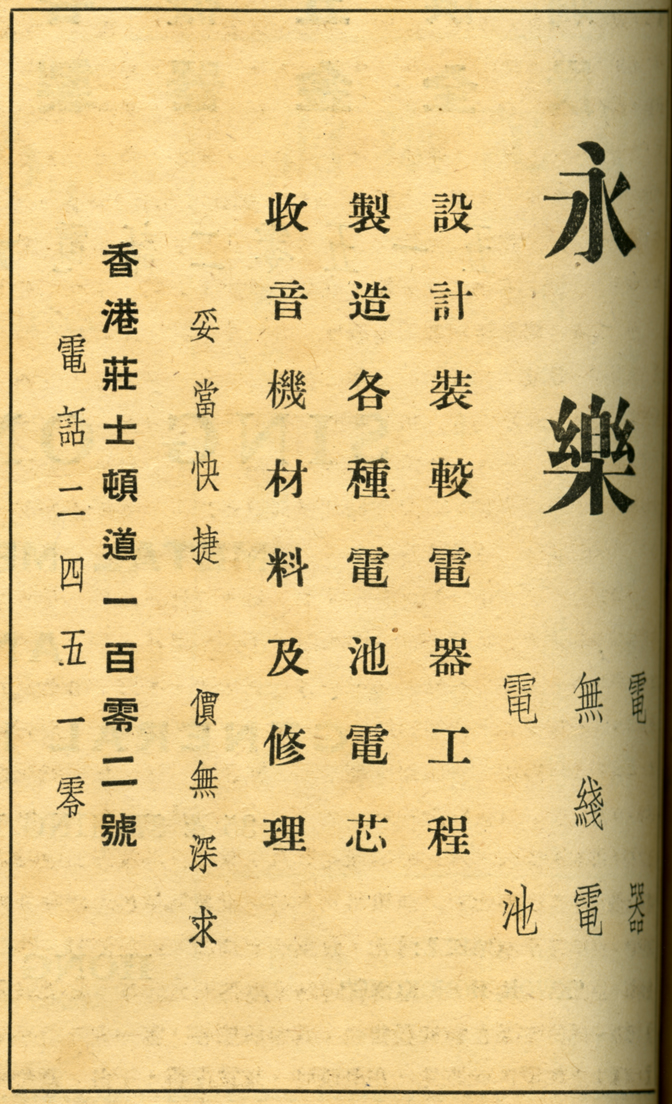 永樂
電器
無綫電
電池
設計裝較電器工程
製造各種電池電芯
收音機材料及修理
妥當快捷 價無深求
香港莊士頓道一百零二號
電話二四五一零